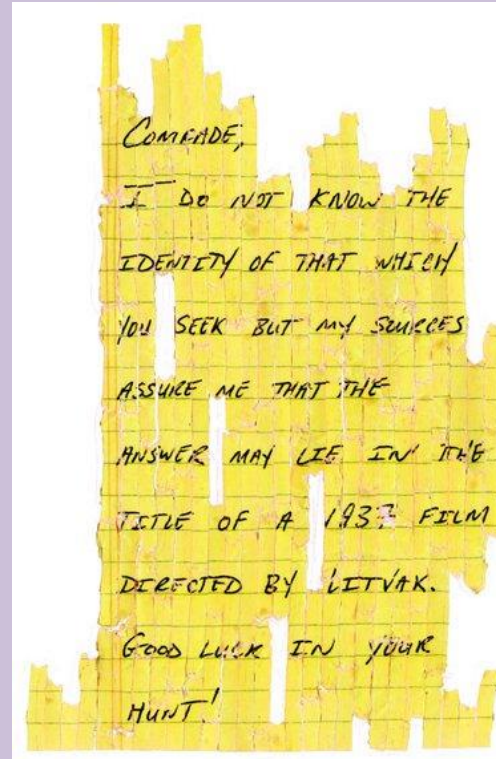 COMRADE,
I DO NOT KNOW THE
IDENTITY OF THAT WHICH
YOU SEEK BUT MY SOURCES
ASSURE ME THAT THE
ANSWER MAY LIE IN THE
TITLE OF A 1937 FILM
DIRECTED BY LITVAK.
GOOD LUCK IN YOUR
HUNT!